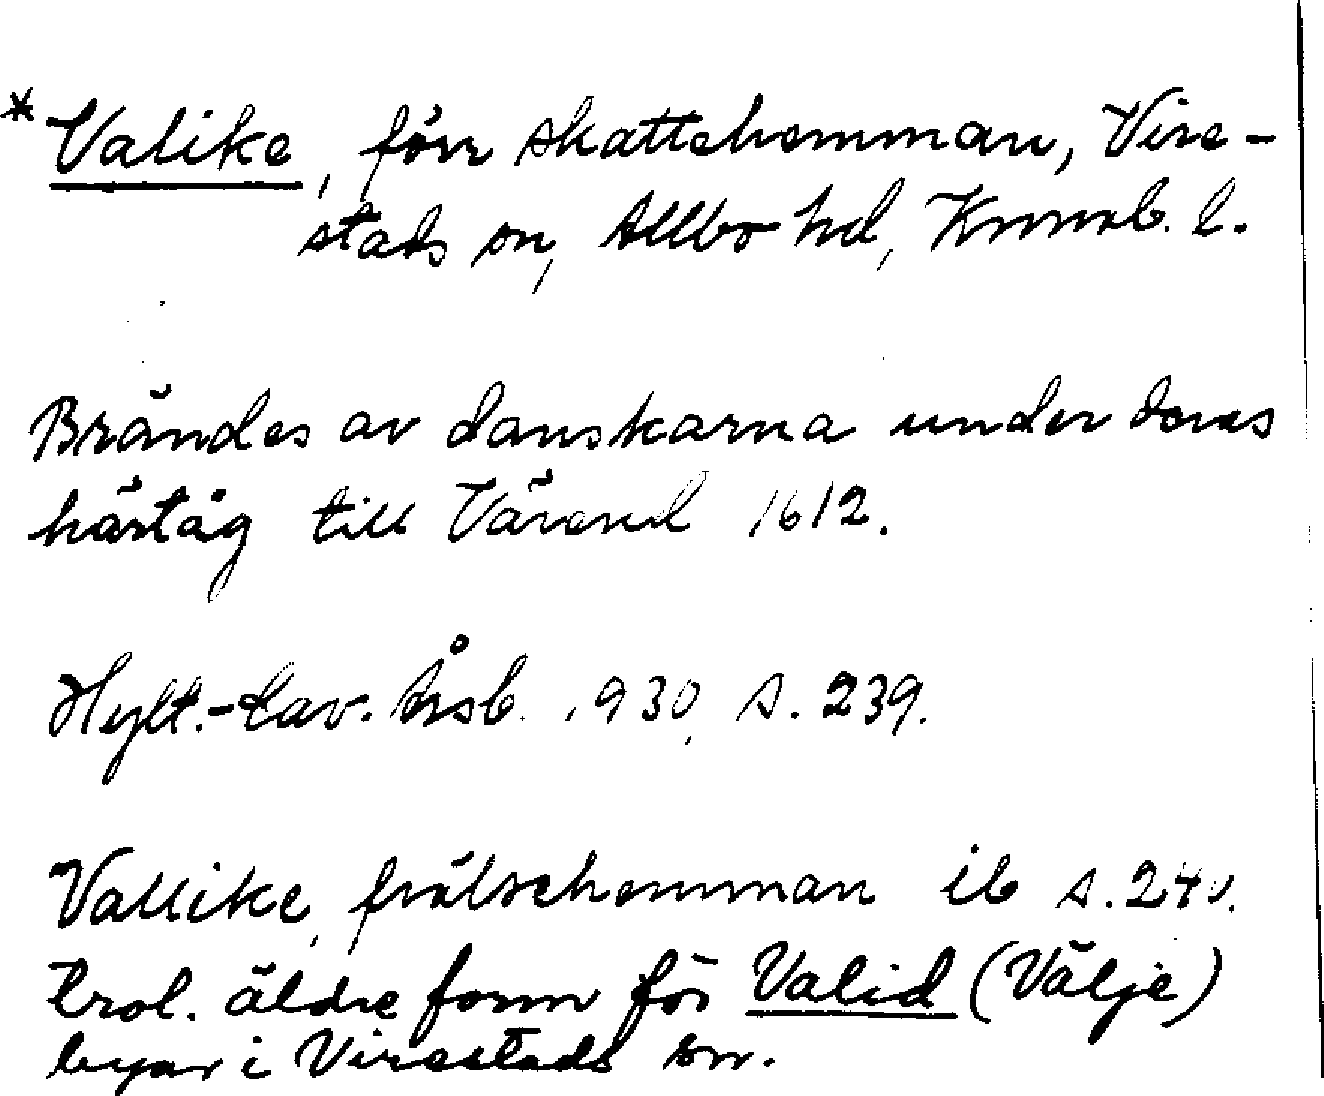 * Valike, förr skattehemman, Vire-
stads sn, Allbo hd, Kronob. l.
Brändes av danskarna under deras
härtåg till Värend 1612.
Hylt.-Cav. Årsb. 1930, s. 239.
Vallike, frälsehemman ib s. 240.
trol. äldre form för Valid (Välje)
byar i Virestads sn.